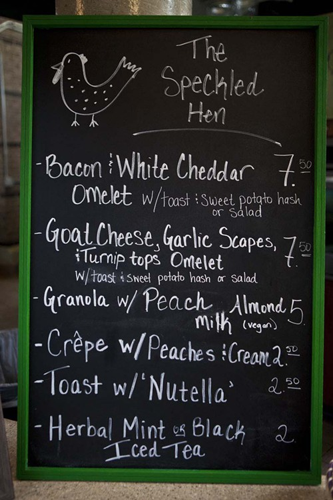 The
Speckled
Hen
- Bacon & White Cheddar 7.50
Omelet w/toast & sweet potato hash
or salad
- Goat Cheese, Garlic Scapes, 7.50
& Turnip tops Omelet
w/toast & sweet potato hash or salad
- Granola w/ Peach Almond 5.
milk (vegan)
- Crêpe w/ Peaches & Cream 2.50
- Toast w/ 'Nutella' 2.50
- Herbal Mint or Black 2.
Iced Tea